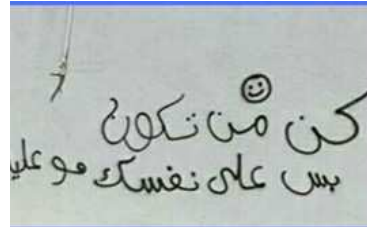 كن من تكون
بس على نفسك مو علي